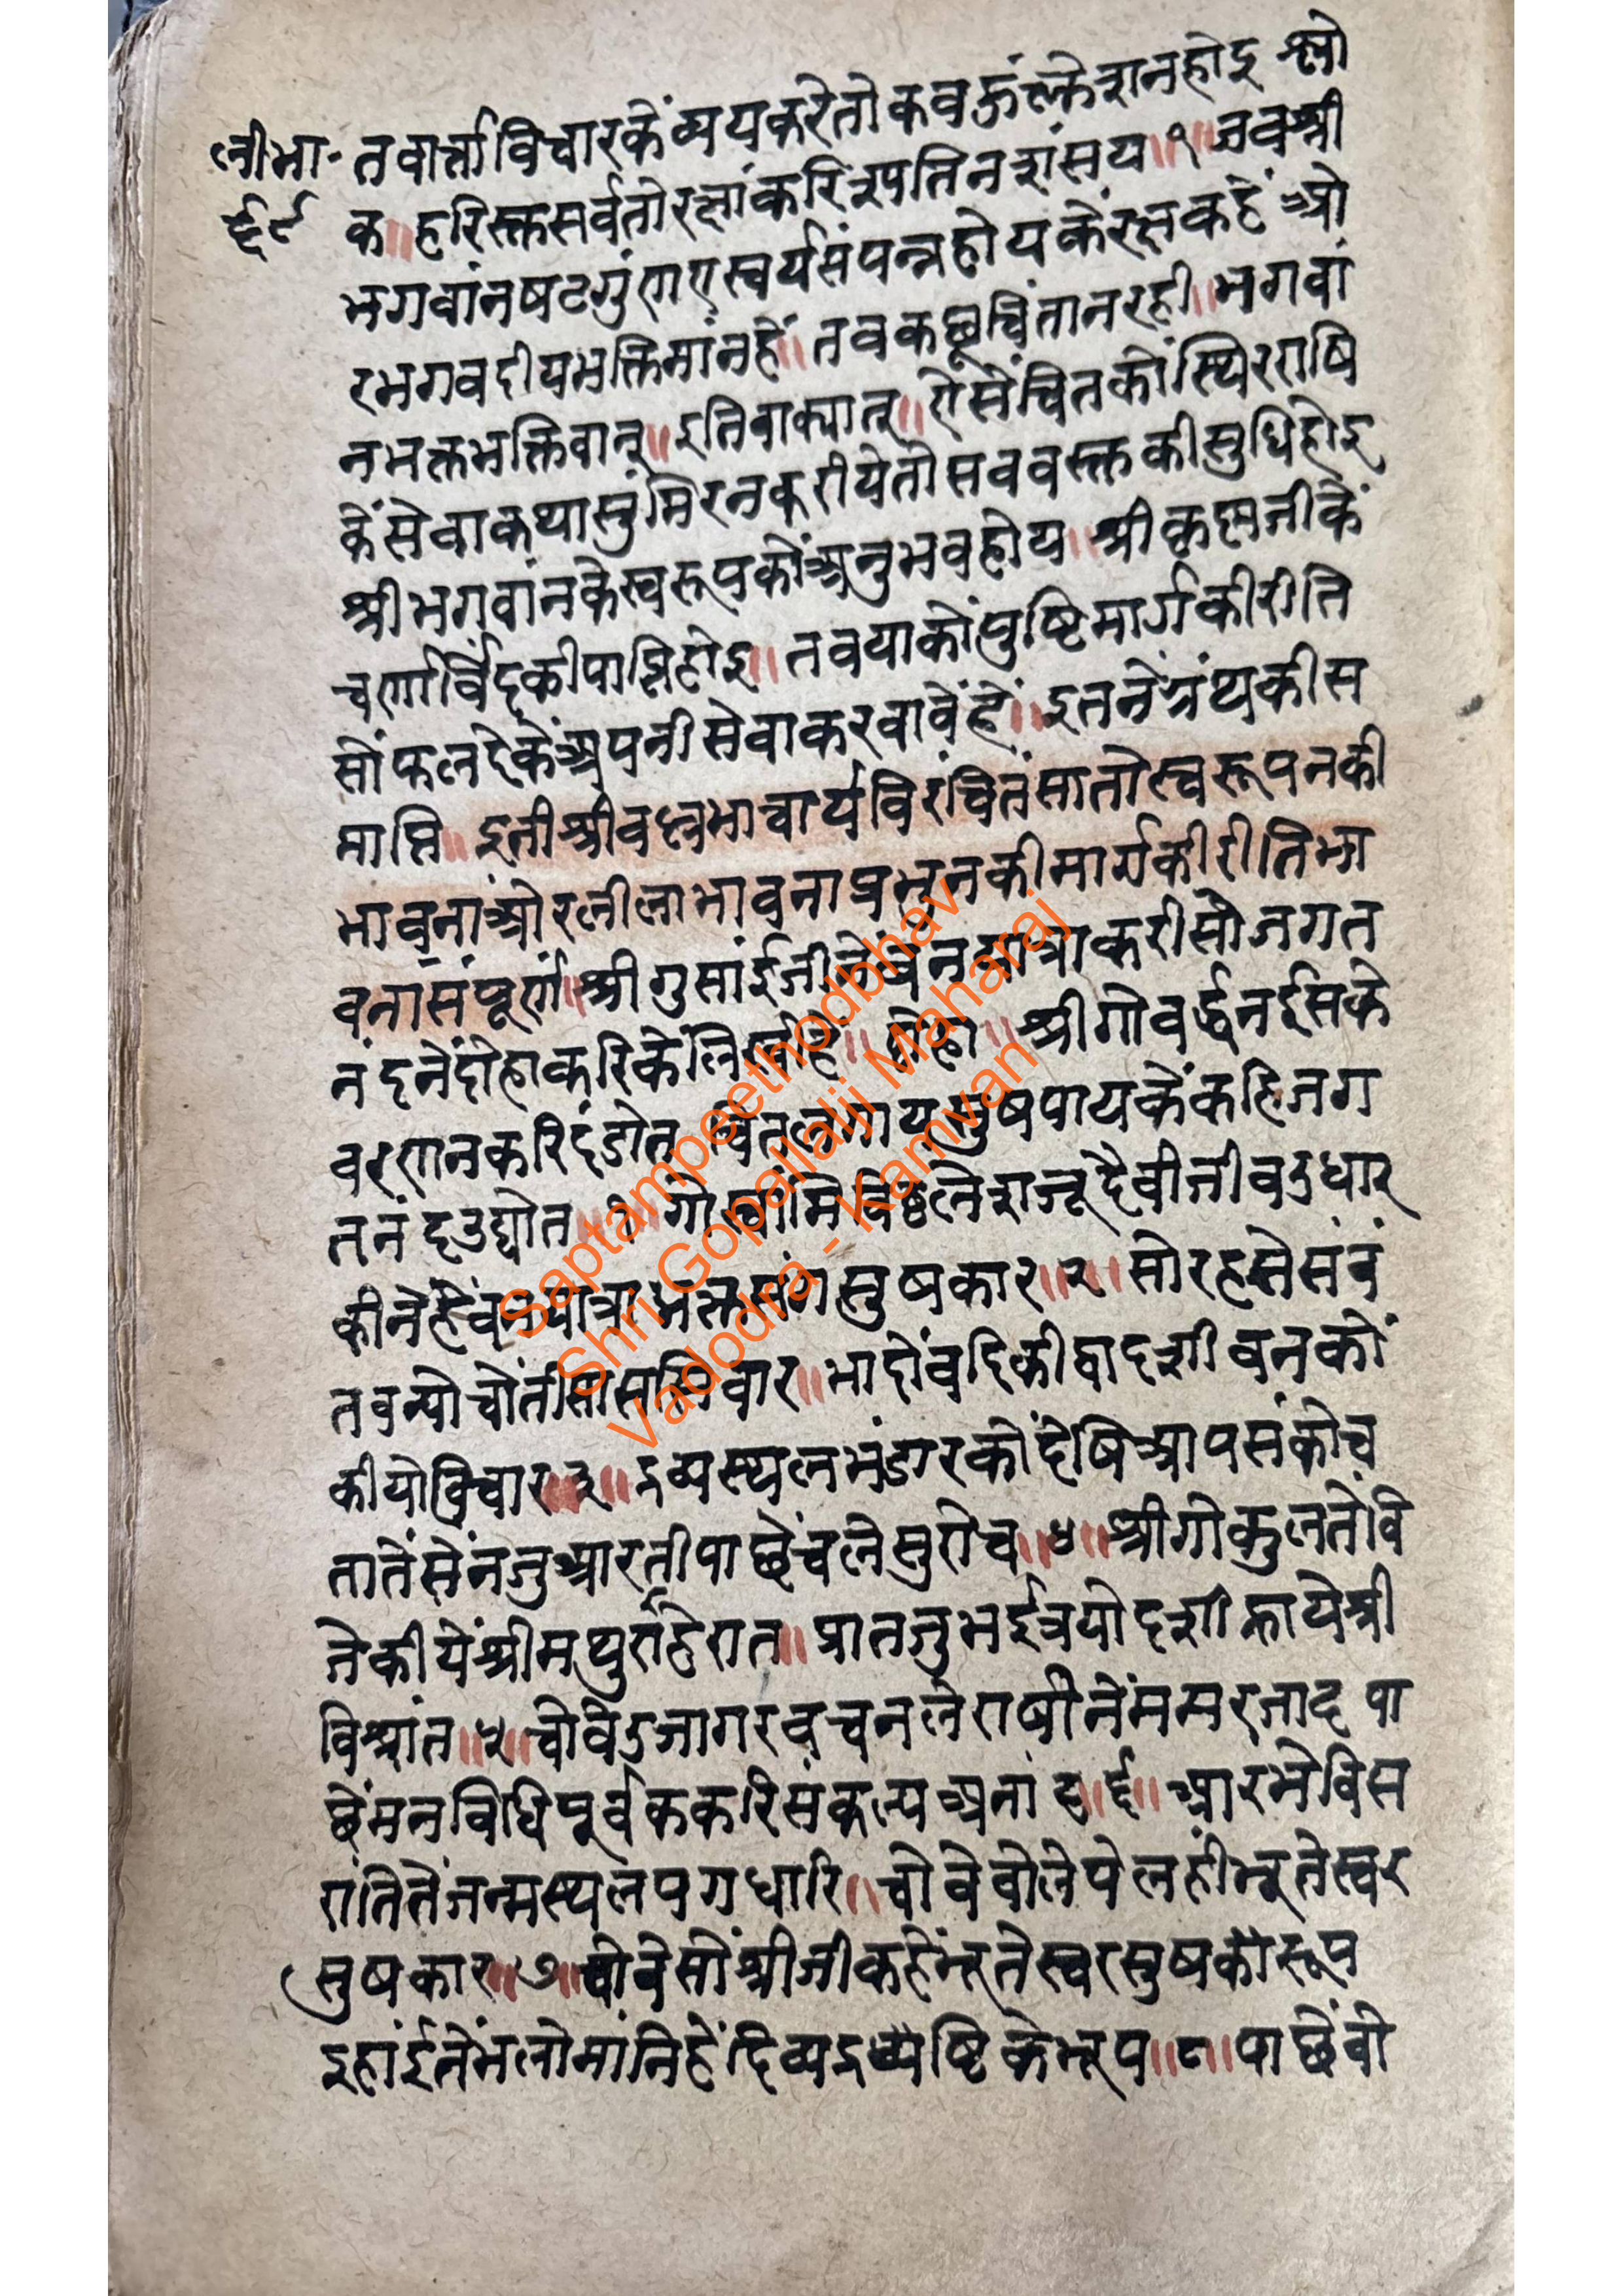 लीभा-
६९
तवार्त्ताविचारकेंव्ययकरेतोकवऊंल्केशनहोइ श्लो
क॥हरिस्तुसर्वतोरक्षांकरिष्यतिनशंसय॥१॥जवश्री
भगवांनषटगुंणएस्वर्यसंपन्नहोयकेंरक्षकहें ओ
रभगवदीयभक्तिमांनहें॥तवकछूचिंतानरही॥भगवां
नभक्तभक्तिवान्॥इतिवाक्यात्॥ऐसेंचितकोंस्थिरराषि
केंसेवाकथासुंमिरनकरीयेतौसववस्तकीसुधिहोइ
श्रीभगवांनकेस्वरूपकोंअनुभवहोय॥श्रीकृष्णजीकें
चर्णार्विंदकीपाप्तिहोइ॥तवयाकोंपुष्टिमार्गकीरीति
सोंफलदेकेंअपनीसेवाकरवावेंहें॥इतनेंग्रंथकीस
माप्ति॥इतीश्रीवल्लभाचार्यविरंचितंसातोस्वरूपनकी
भावनांओरलीलाभावनाप्रभुनकीमार्गकीरीतिभा
वनासंपूर्ण॥श्रीगुसांईजीनेंवनयात्राकरीसोजगत
नंदनेंदोहाकरिकेंलिखेहें॥दोहा॥श्रीगोवर्द्धनईसके
चरणनकरिदंडोत चितलगायसुषपायकेंकहिजग
तनंदउद्योत॥१॥गोस्वांमिविठ्ठलेशजूदैवीजीवउधार
कीनेंहेंवनयात्राभक्तसंगसुषकार॥२॥सोरहसेसंवं
तवन्योचोंतीसासनिवार॥भादोंवदिकीद्वादशीवनकों
कीयोविचार॥३॥द्रव्यस्थलभंडारकोंदेषिआपसंकोच
तातेंसेंनजुआरतीपाछेंचलेसुरोच॥४॥श्रीगोकुलतेंवि
जेकीयेंश्रीमथुराठेरात॥प्रातजुभईत्रयोदशीन्हायेश्री
विश्रांत॥५॥चोवेउजागरवचनलेराषीनेंमम्मरजाद पा
छेंमनविधिपूर्वककरिसंकल्पअनांद॥६॥आरभेविस
रांतितेंजन्मस्थलपगधारि॥चोवेवोलेपेलहींभूतेस्वर
सुषकार॥७॥चोवेसोंश्रीजीकहेंभूतेस्वरसुषकोरूप
इहांईनेंभलोमांनिहेंदिव्यद्रव्यष्टिकेभूप॥८॥पाछेंवो
Saptampeethodbhav
Shri Gopalalji Maharaj
Vadodra - Kamvan